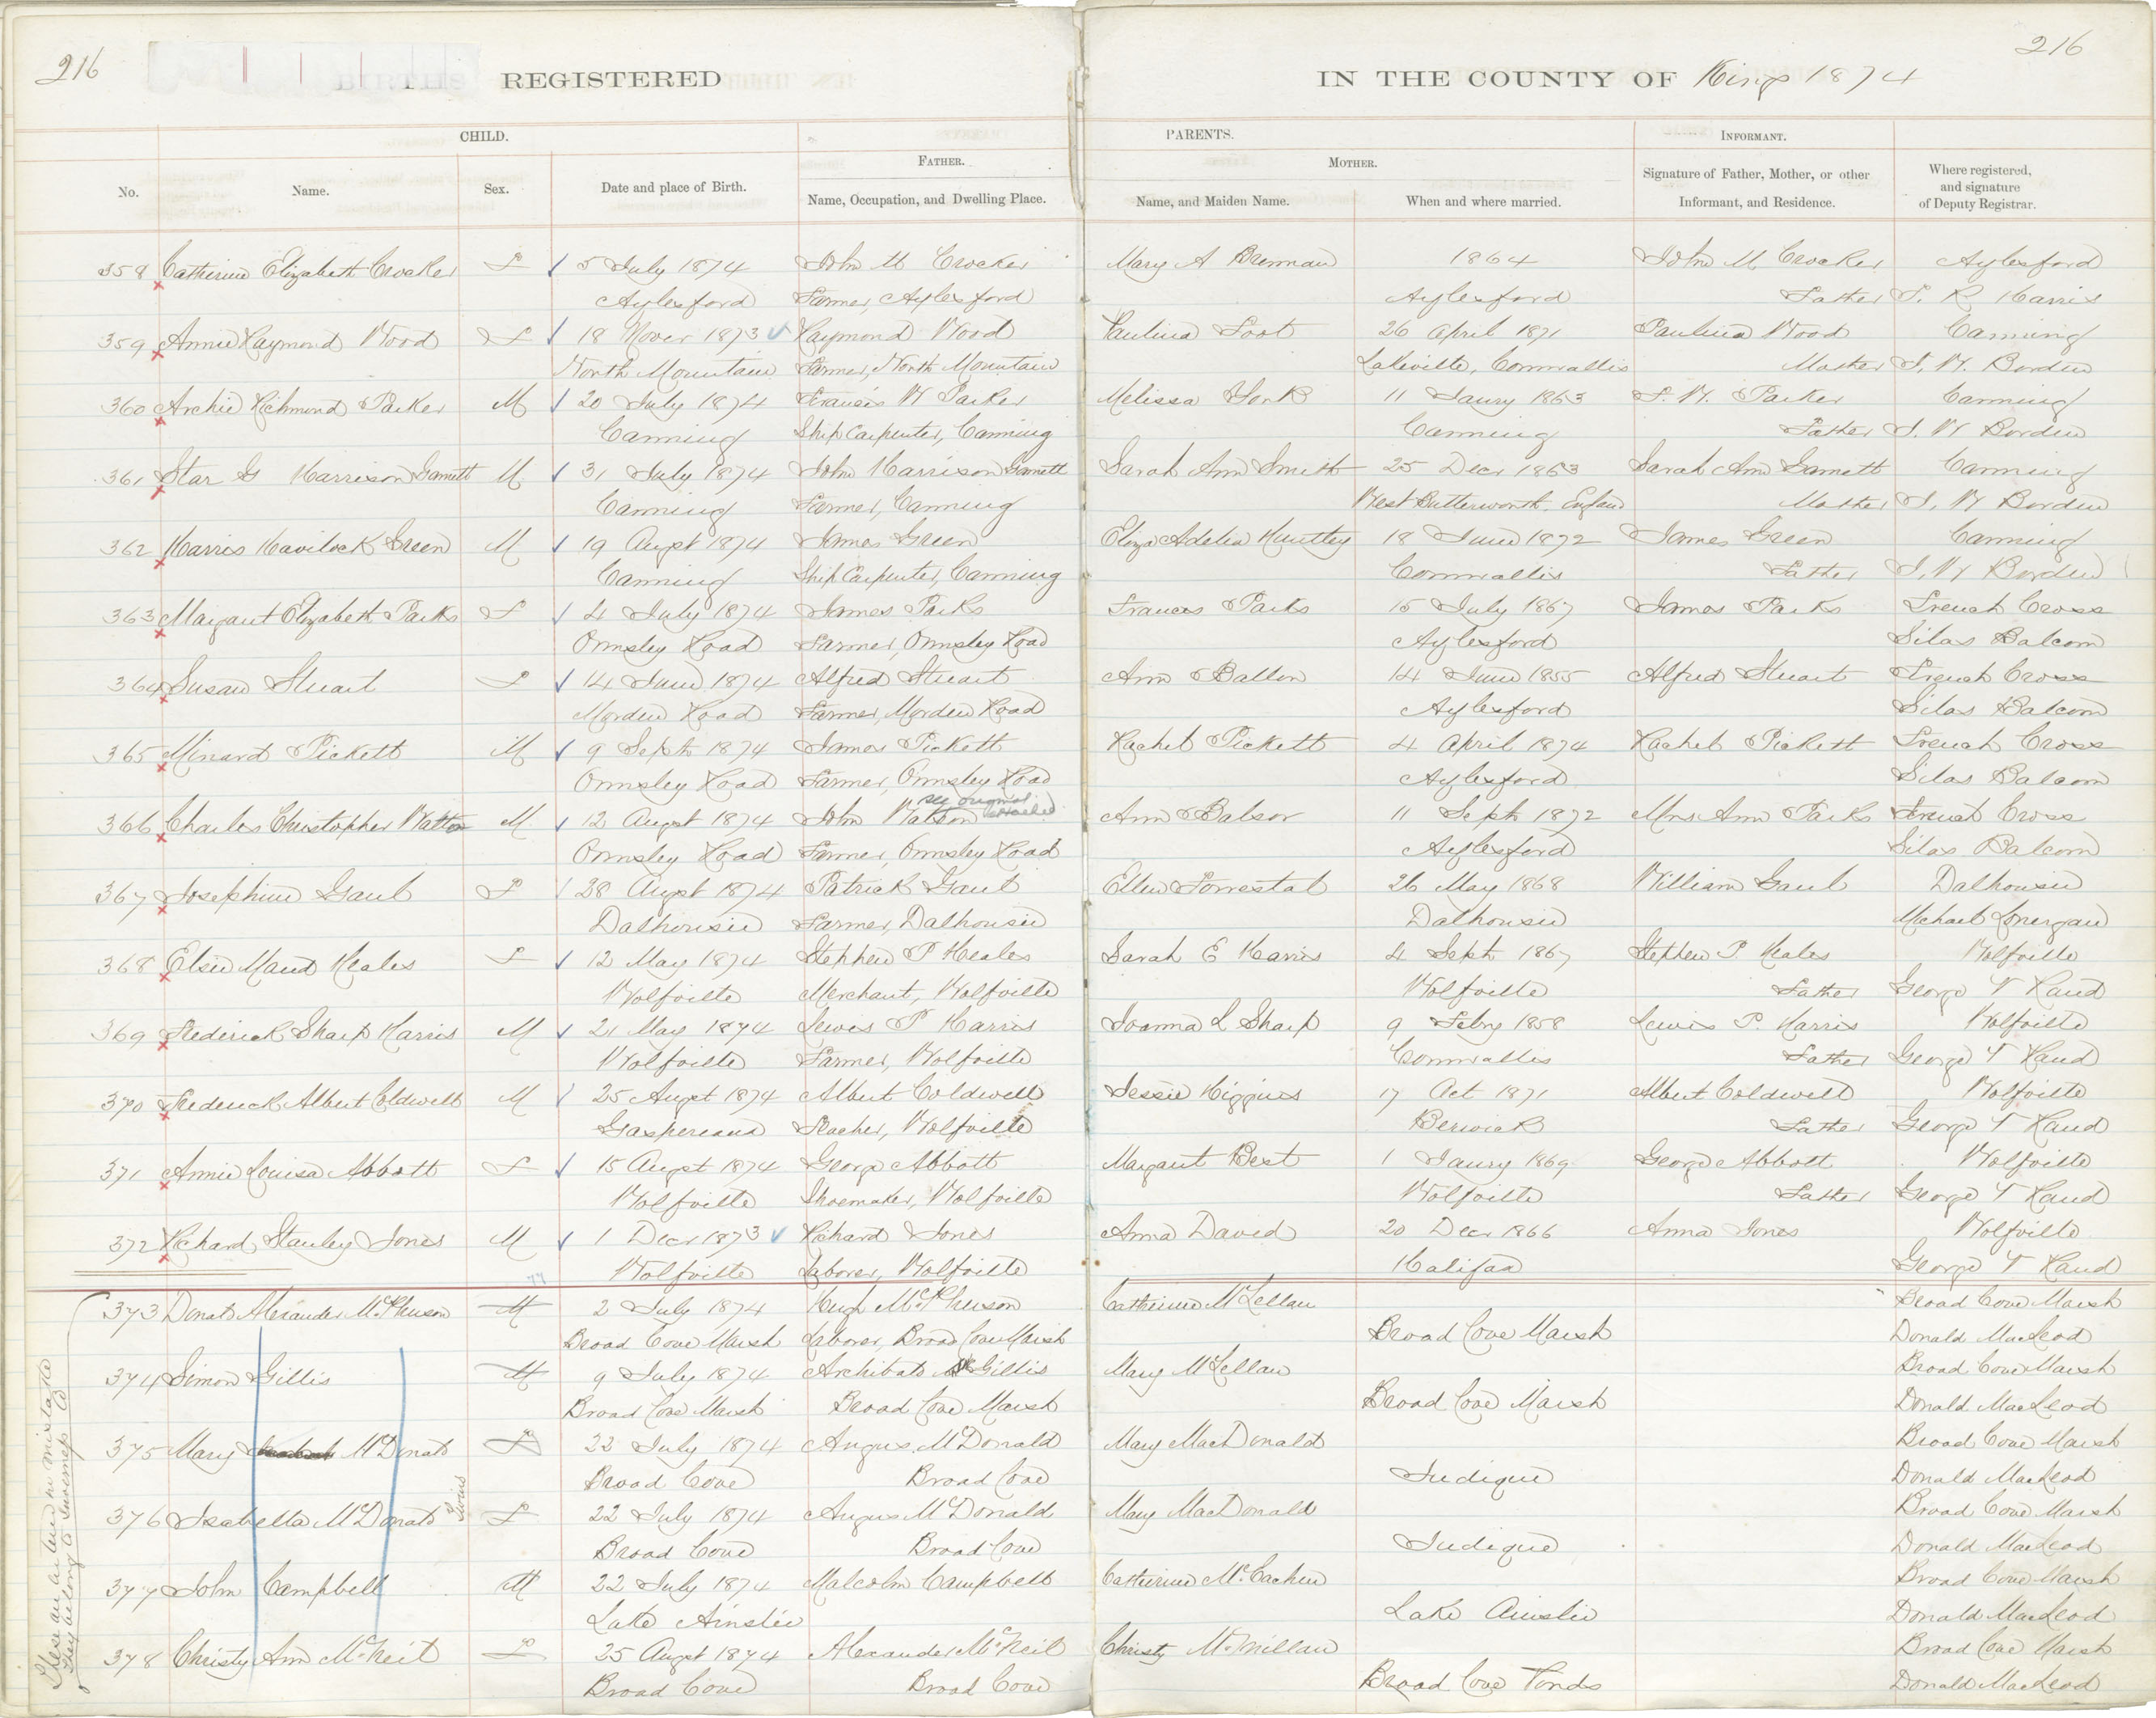 216
216
BIRTHS REGISTERED
IN THE COUNTY OF Kings 1874
CHILD.
PARENTS.
INFORMANT.
FATHER.
MOTHER.
No.
Name.
Sex.
Date and place of Birth.
Name, Occupation, and Dwelling Place.
Name, and Maiden Name.
When and where married.
Signature of Father, Mother, or other Informant, and Residence.
Where registered, and signature of Deputy Registrar.
358 Catherine Elizabeth Crocker F 5 July 1874 John M Crocker Mary A Brennan 1864 John M Crocker Aylesford
Aylesford Farmer, Aylesford Aylesford Father T. R Harris
359 Annie Raymond Wood F 18 Novr 1873 Raymond Wood Paulina Foot 26 April 1871 Paulina Wood Canning
North Mountain Farmer, North Mountain Lakeville, Cornwallis Mother J. W. Borden
360 Archie Richmond Parker M 20 July 1874 Francis W Parker Melissa York 11 Jaury 1863 F. W. Parker Canning
Canning Ship Carpenter, Canning Canning Father J. W Borden
361 Star G Harrison Garnett M 31 July 1874 John Harrison Garnett Sarah Ann Smith 25 Decr 1863 Sarah Ann Garnett Canning
Canning Farmer, Canning West Butterworth, England Mother J. W Borden
362 Harris Havilock Green M 19 Augst 1874 James Green Eliza Adelia Huntley 18 June 1872 James Green Canning
Canning Ship Carpenter, Canning Cornwallis Father J. W Borden
363 Margaret Elizabeth Parks F 4 July 1874 James Parks Frances Parks 15 July 1867 James Parks French Cross
Ormsley Road Farmer, Ormsley Road Aylesford Silas Balcom
364 Susan Stuart F 14 June 1874 Alfred Stuart Ann 14 June 1855 Alfred Stuart French Cross
Morden Road Farmer, Morden Road Aylesford Silas Balcom
365 Minard Pickett M 9 Sept 1874 James Pickett Rachel Pickett 4 April 1874 Rachel Pickett French Cross
Ormsley Road Farmer, Ormsley Road Aylesford Silas Balcom
see original attached
366 Charles Christopher Watton M 12 Augst 1874 John Watson Ann Balsor 11 Sept 1872 Mrs Ann Parks French Cross
Ormsley Road Farmer, Ormsley Road Aylesford Silas Balcom
367 Josephine Gaul F 28 Augst 1874 Patrick Gaul Ellen Forrestal 26 May 1868 William Gaul Dalhousie
Dalhousie Farmer, Dalhousie Dalhousie Michael Lonergan
368 Elsie Maud Heales F 12 May 1874 Stephen P Heales Sarah E Harris 4 Sept 1867 Stephen P Heales Wolfville
Wolfville Merchant, Wolfville Wolfville Father George T Rand
369 Frederick Sharp Harris M 21 May 1874 Lewis P Harris Joanna L Sharp 9 Febry 1858 Lewis P. Harris Wolfville
Wolfville Farmer, Wolfville Cornwallis Father George T Rand
370 Frederick Albert Coldwell M 25 Augst 1874 Albert Coldwell Jessie Higgins 17 Oct 1871 Albert Coldwell Wolfville
Gaspereaux Teacher, Wolfville Berwick Father George T Rand
371 Annie Louisa Abbott F 15 Augst 1874 George Abbott Margaret Best 1 Jaury 1869 George Abbott Wolfville
Wolfville Shoemaker, Wolfville Wolfville Father George T Rand
372 Richard Stanley Jones M 1 Decr 1873 Richard Jones Anna David 20 Decr 1866 Anna Jones Wolfville
Wolfville Laborer, Wolfville Halifax George T Rand
373 Donald Alexander McPherson M 2 July 1874 Hugh McPherson Catherine McLellan Broad Cove Marsh
Broad Cove Marsh Laborer, Broad Cove Marsh Broad Cove Marsh Donald MacLeod
374 Simon Gillis M 9 July 1874 Archibald Gillis Mary McLellan Broad Cove Marsh
Broad Cove Marsh Broad Cove Marsh Broad Cove Marsh Donald MacLeod
375 Mary McDonald F 22 July 1874 Angus McDonald Mary MacDonald Broad Cove Marsh
Broad Cove Broad Cove Judique Donald MacLeod
Twins
376 Isabella McDonald F 22 July 1874 Angus McDonald Mary MacDonald Broad Cove Marsh
Broad Cove Broad Cove Judique Donald MacLeod
377 John Campbell M 22 July 1874 Malcolm Campbell Catherine McEachen Broad Cove Marsh
Lake Ainslie Lake Ainslie Donald MacLeod
378 Christy Ann McNeil F 25 Augst 1874 Alexander McNeil Christy McMillan Broad Cove Marsh
Broad Cove Broad Cove Broad Cove Ponds Donald MacLeod
These are entered in mistake
they belong to Inverness Co